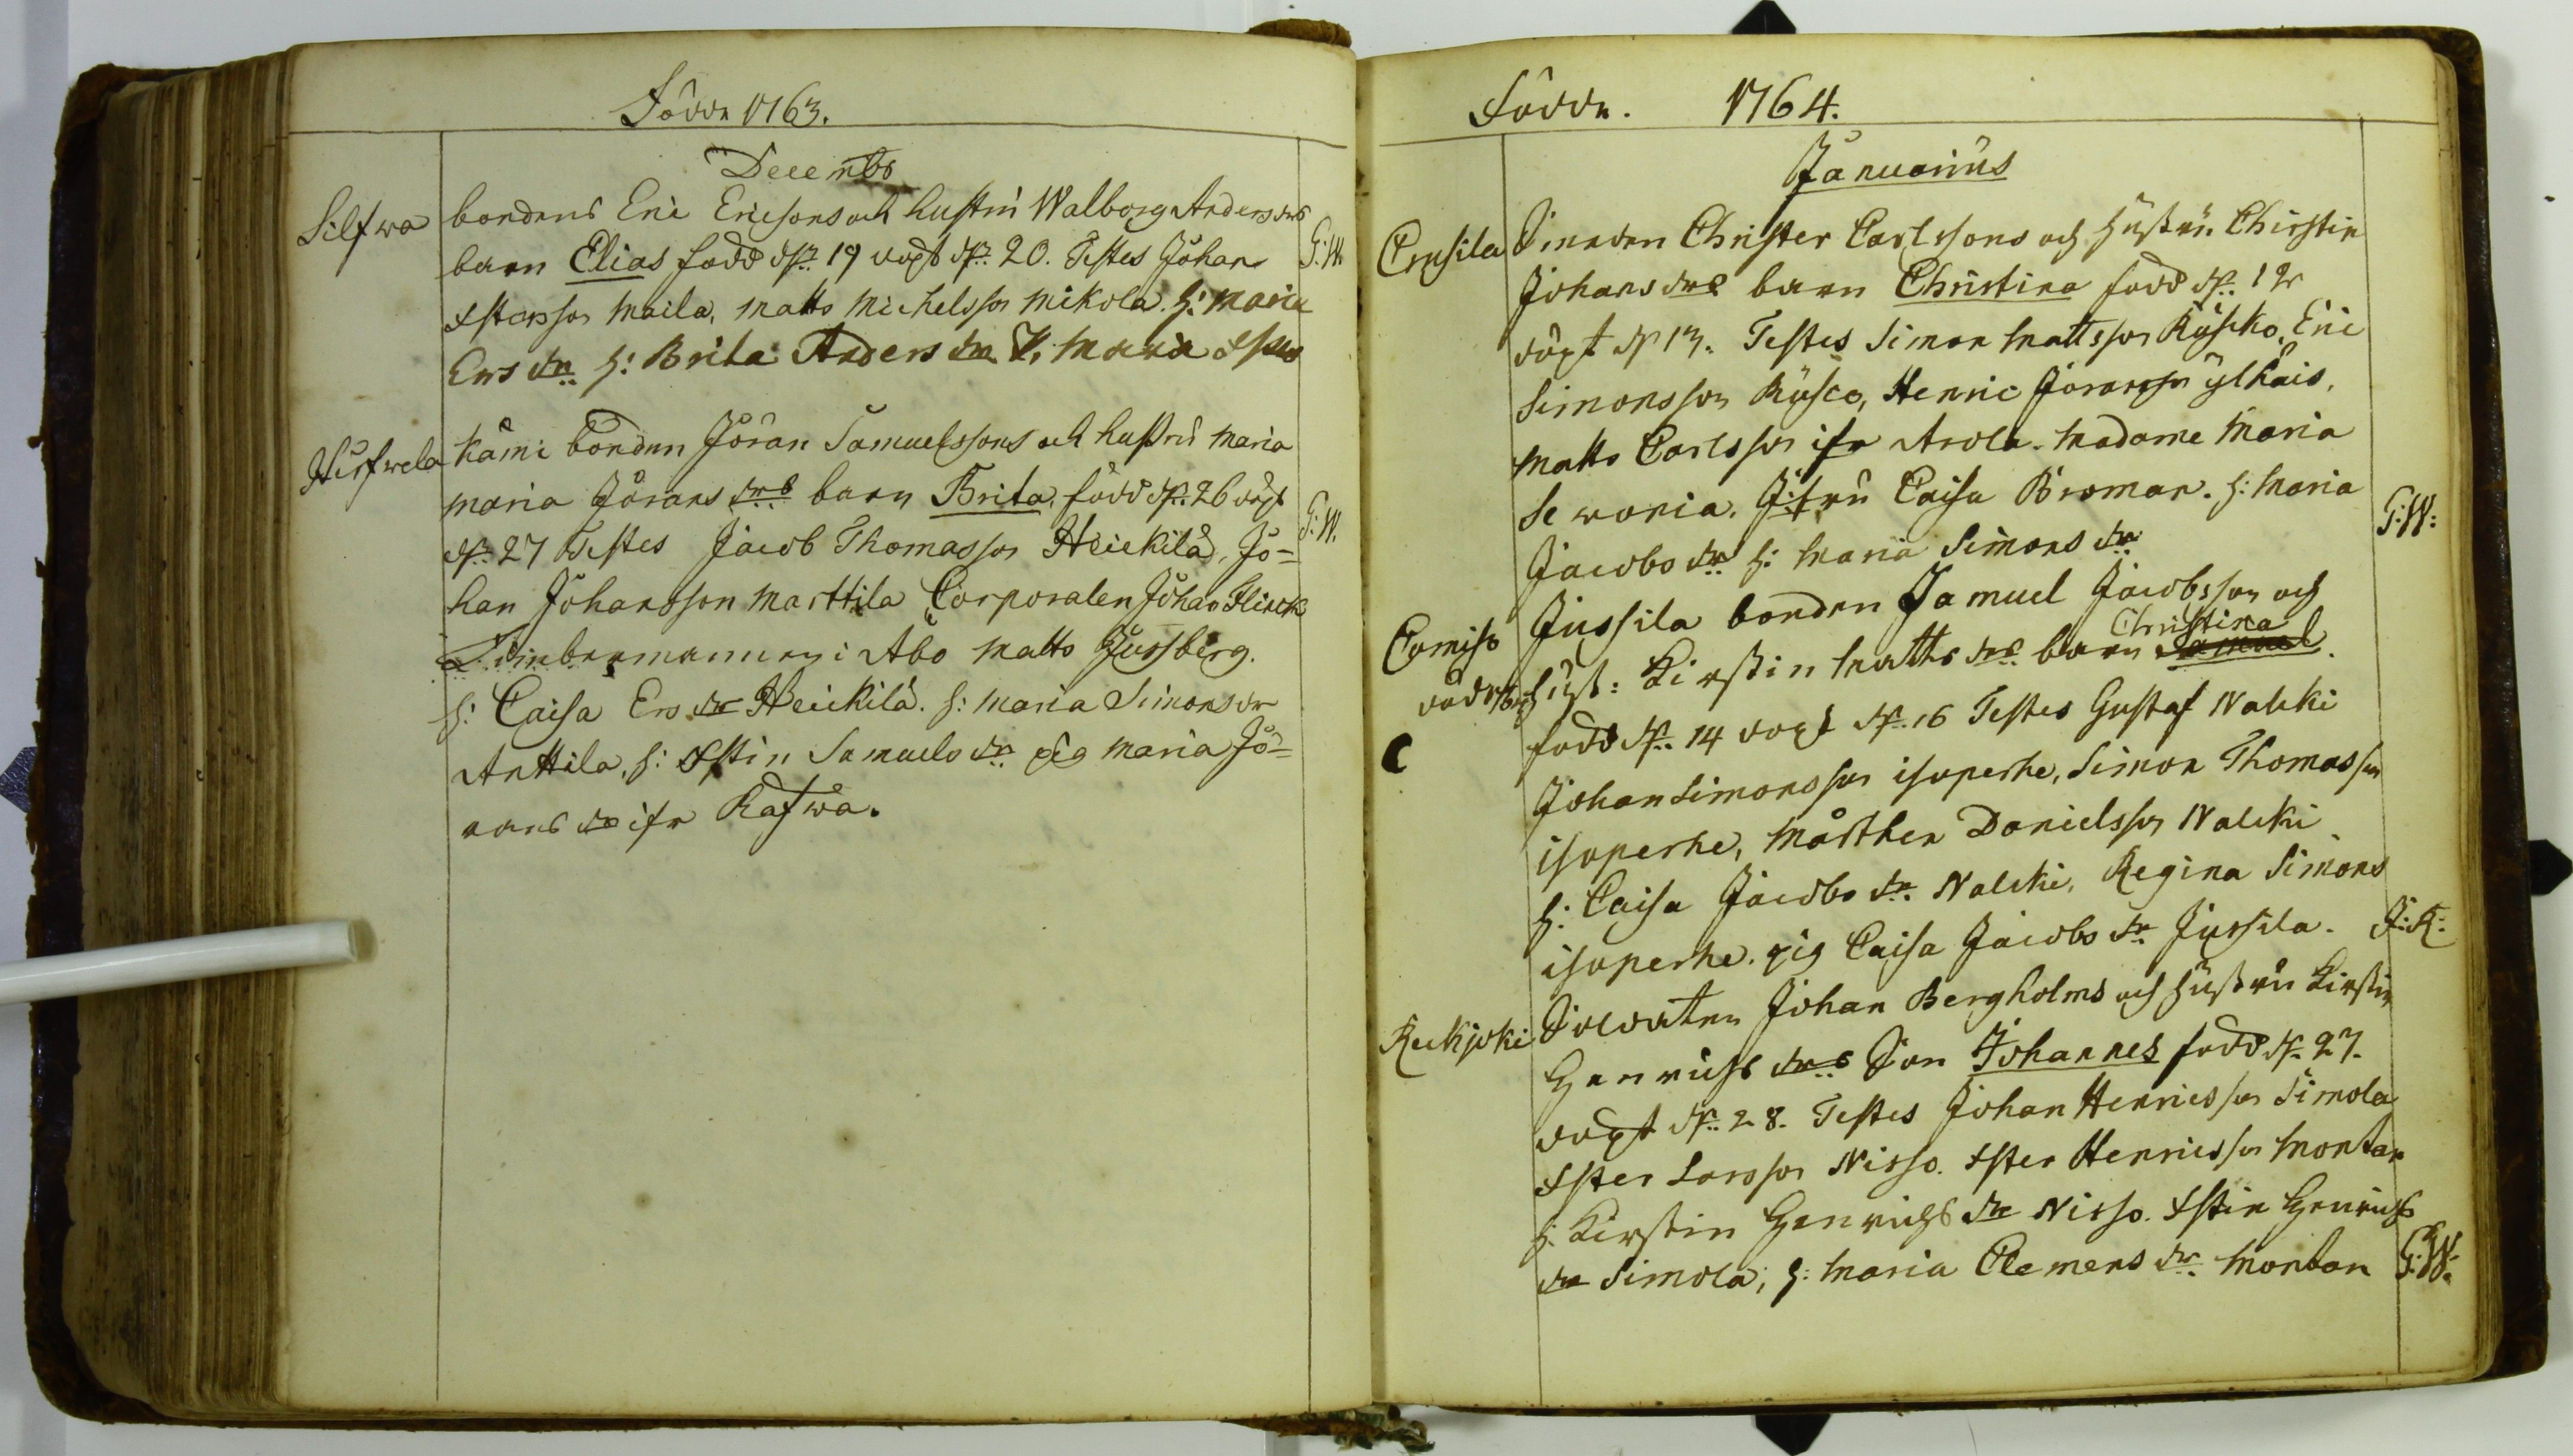 Födde 1763.
Decembr
Silfwa
bondens Eric Ericsons och hustru Walborg Andersdrs
barn Elias född d. 19 döpt d. 20. Testes Johan
Maila, Matts Michelsson Mikola. h: Maria
Ers dr h: Brita Anders dr Maria
G:W.
Hirfwela
Kämi bonden Jöran Samuelssons och hustrus Maria
Maria Jörans drs barn Brita, född d. 26 döpt
d. 27 Testes Jacob Thomasson Heickilä, Jo=
han Johansson Marttila Corporalen Johan Flinck
Timbermannen i Åbo Matts Jussberg.
h: Caisa Ers dr Heickilä. h: Maria Simonsdr
Anttila, h: Samuels dr pig Maria Jö=
rans dr ifr Rafwa.
G:W.
Födde. 1764.
Januarius
Smeden Christer Carlssons och hustru Christin
Johans drs barn Christina född d. 12
döpt d 13. Testes Simon Mattsson Rusko, Eric
Simonsson Rusco, Henric Joransson ylhäis,
Matts Carlsson ifr Arola. Madame Maria
Jfru Caisa Broman. h: Maria
Jacobs dr h: Maria Simons dr
G:W:
Comisb
Jussila bonden Samuel Jacobsson och
hust: Kirstin Matts drs barn Samuel Christina
född d. 14 döpt d. 16 Testes Gustaf Nalcki
Johan Simonsson isoperhe, Simon Thomasson
isoperhe, Mårthen Danielsson Nalcki
h: Caisa Jacobs dr. Nalcki, Regina Simons
isoperhe. pig Caisa Jacobs dr Jussila.
J:K:
Reckjoki
Soldaten Johan Bergholms och hustru Kirstin
Henrichs drs Son Johannes född d. 27.
döpt d. 28. Testes Johan Henricsson Simola
Larsson Nisso. Henricsson Montan
h. Kirstin Henrichs dr Nisso. Henrichs
dr Simola; h: Maria Clemens dr. Montan
G:W: